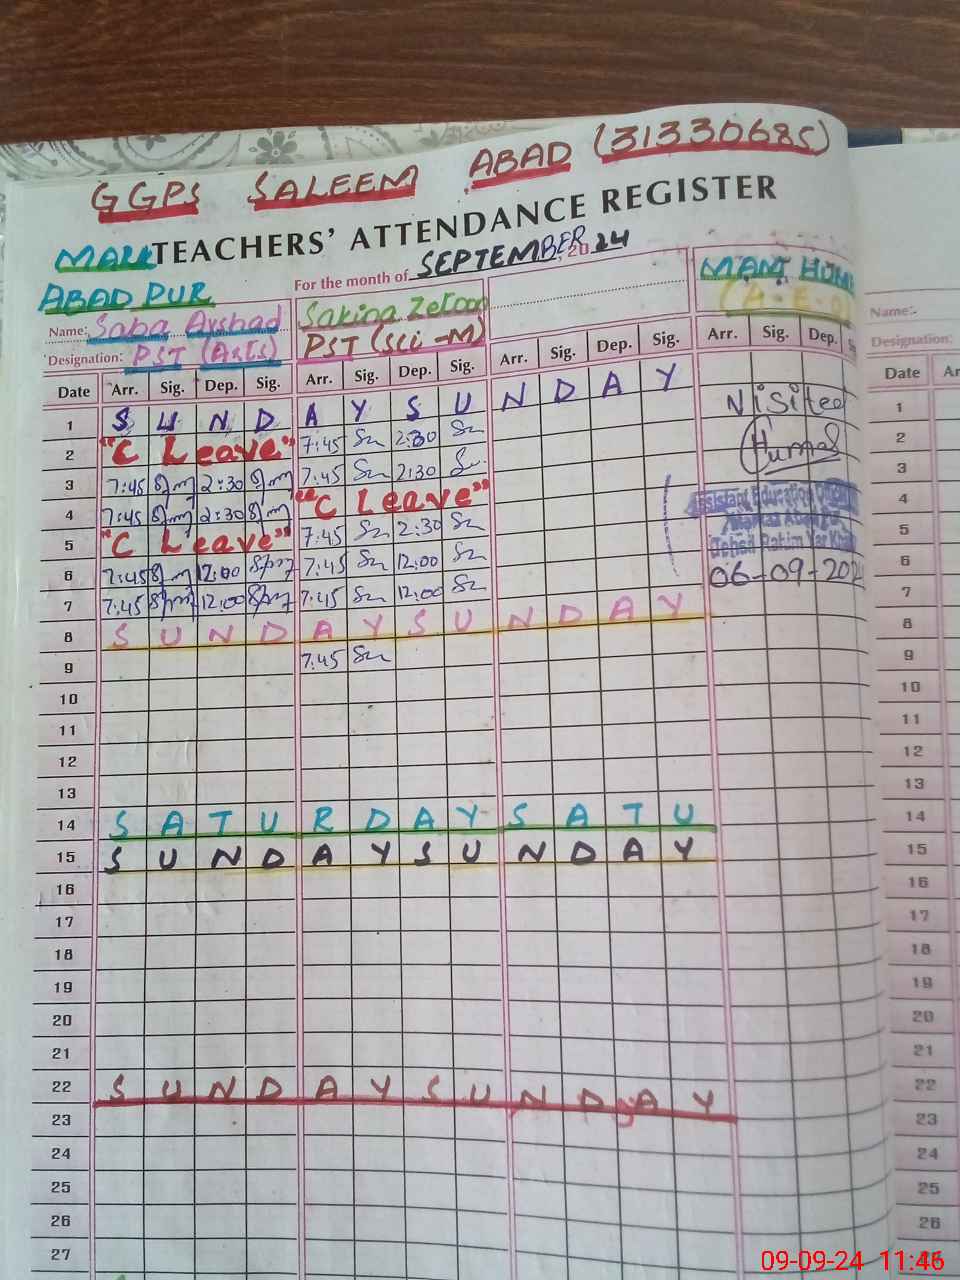 GGPS SALEEM ABAD (31330685)
TEACHERS' ATTENDANCE REGISTER
For the month of SEPTEMBER 2024
ABAD PUR
Name: Saba Arshad
Sakina
Designation: PST (Arts)
PST (Sci-M)
(A.E.O)
Date Arr. Sig. Dep. Sig. Arr. Sig. Dep. Sig. Arr. Sig. Dep. Sig. Arr. Sig. Dep.
1 S U N D A Y S U N D A Y
2 "C Leave" 7:45 2:30
Visited
3 7:45 2:30 7:45 2:30
4 7:45 2:30 "C Leave"
Assistant Education
5 "C Leave" 7:45 2:30
Tehsil Rahim Yar Khan
6 7:45 12:00 7:45 12:00
06-09-202
7 7:45 12:00 7:45 12:00
8 S U N D A Y S U N D A Y
9 7:45
10
11
12
13
14 S A T U R D A Y S A T U
15 S U N D A Y S U N D A Y
16
17
18
19
20
21
22 S U N D A Y S U N D A Y
23
24
25
26
27
Name:-
Designation:
Date Ar
1
2
3
4
5
6
7
8
9
10
11
12
13
14
15
16
17
18
19
20
21
22
23
24
25
26
09-09-24 11:46